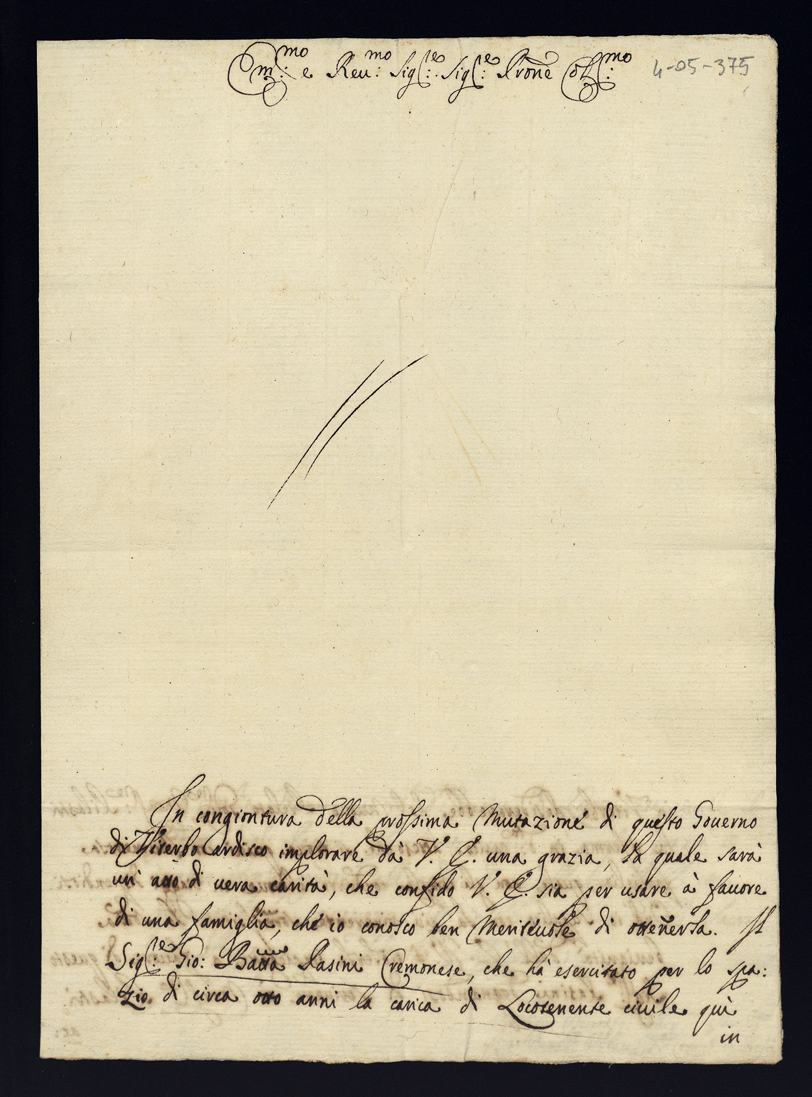 Em:mo e Reu:mo Sig:re Sig:re Prone Col:mo
4-05-375
In congiontura della prossima Mutazione di questo Gouerno
di Viterbo ardisco implorare dà V. E. una grazia, la quale sarà
un' atto di uera carità, che confido V. E. sia per usare à fauore
di una famiglia, che io conosco ben Meriteuole di ottenerla. Il
Sig:re Gio: Batta Rasini Cremonese, che hà esercitato per lo spa:
zio di circa otto anni la carica di Locotenente ciuile quì
in